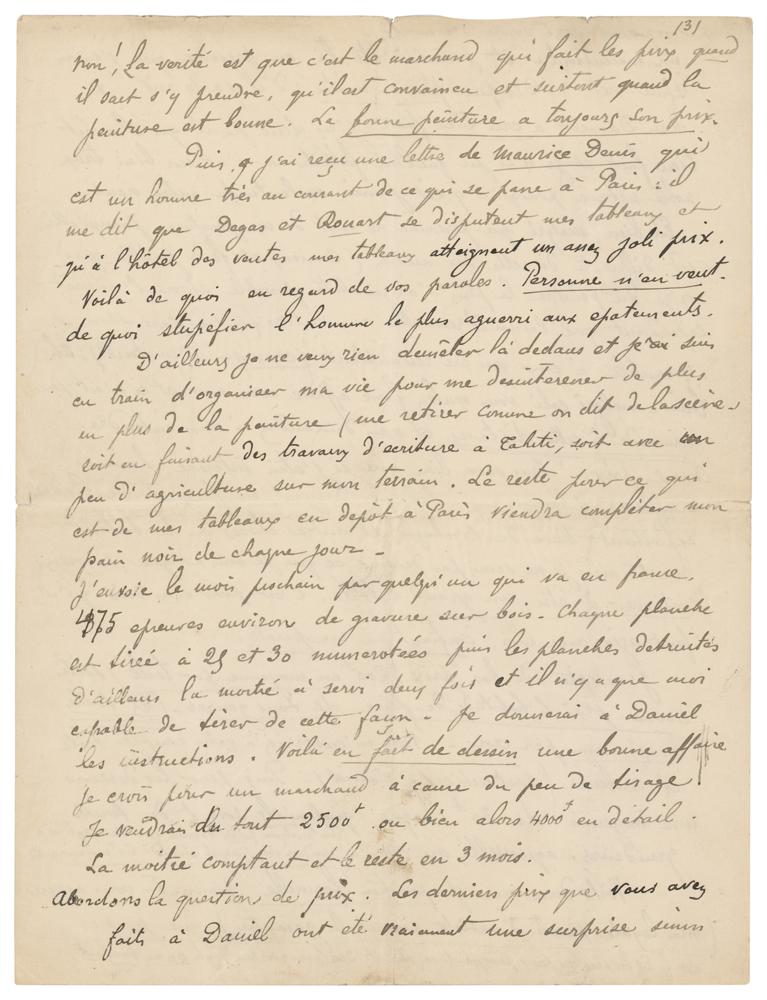 131
non! La verité est que c'est le marchand qui fait les prix quand
il sait s'y prendre, qu'il est convaincu et surtout quand la
peinture est bonne. La bonne peinture a toujours son prix.
Puis, q j'ai reçu une lettre de Maurice Denis qui
est un homme très au courant de ce qui se passe à Paris: il
me dit que Degas et Rouart se disputent mes tableaux et
qu'à l'hôtel des ventes mes tableaux atteignent un assez joli prix.
Voilà de quoi en regard de vos paroles. Personne n'en veut.
de quoi stupéfier l'homme le plus aguerri aux epatements.
D'ailleurs je ne veux rien demêler là dedans et je suis
en train d'organiser ma vie pour me desinteresser de plus
en plus de la peinture (me retirer comme on dit de la scène.)
soit en faisant des travaux d'ecriture à Tahiti, soit avec un
peu d'agriculture sur mon terrain. Le reste pour ce qui
est de mes tableaux en depôt à Paris viendra compléter mon
pain noir de chaque jour -
J'envoie le mois prochain par quelqu'un qui va en france,
475 epreuves environ de gravure sur bois - Chaque planche
est tirée à 25 et 30 numerotées puis les planches detruites
d'ailleurs la moitié a servi deux fois et il n'y a que moi
capable de tirer de cette façon - Je donnerai à Daniel
les instructions. Voilà en fait de dessin une bonne affaire
je crois pour un marchand à cause du peu de tirage.
Je vendrais du tout 2500f ou bien alors 4000f en détail.
La moitié comptant et le reste en 3 mois.
Abordons la question de prix. Les derniers prix que vous avez
faits à Daniel ont été vraiement une surprise sinon